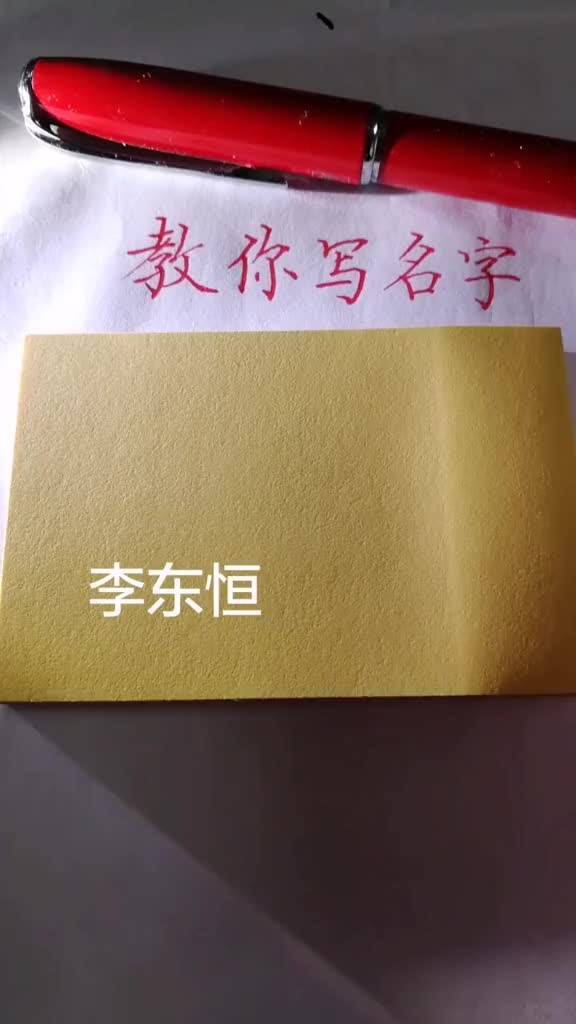 教你写名字
李东恒